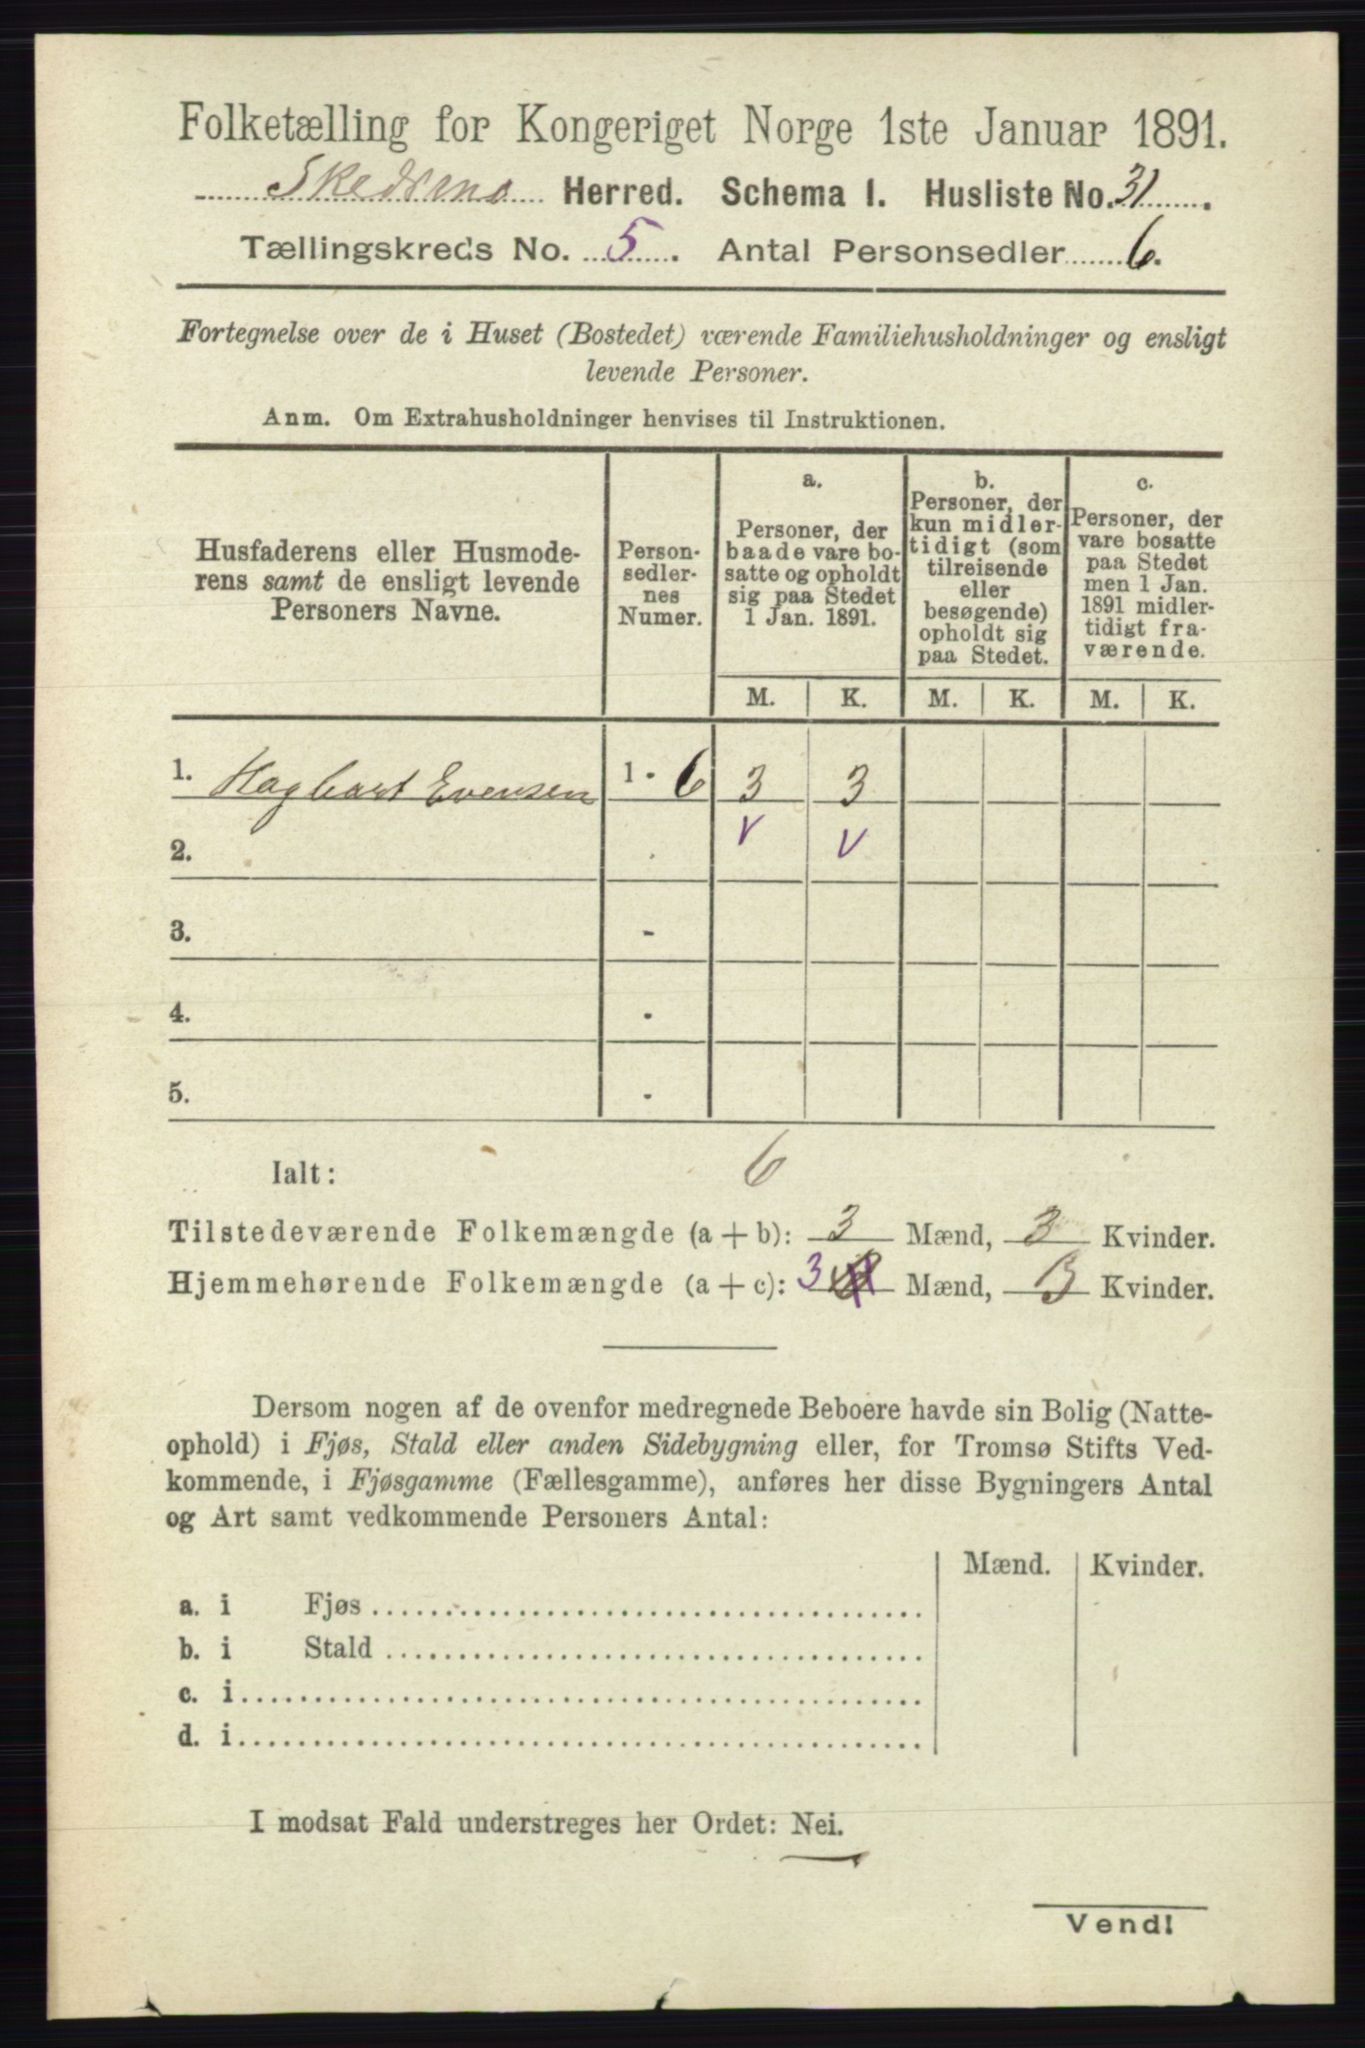 Folketælling for Kongeriget Norge 1ste Januar 1891.
Skedsmo Herred. Schema I. Husliste No. 31.
Tællingskreds No. 5. Antal Personsedler 6.
Fortegnelse over de i Huset (Bostedet) værende Familiehusholdninger og ensligt
levende Personer.
Anm. Om Extrahusholdninger henvises til Instruktionen.
Husfaderens eller Husmode-
rens samt de ensligt levende
Personers Navne.
Person-
sedler-
nes
Numer.
a.
Personer, der
baade vare bo-
satte og opholdt
sig paa Stedet
1 Jan. 1891.
b.
Personer, der
kun midler-
tidigt (som
tilreisende
eller
besøgende)
opholdt sig
paa Stedet.
c.
Personer, der
vare bosatte
paa Stedet
men 1 Jan.
1891 midler-
tidigt fra-
værende.
M. K. M. K. M. K.
1. Hagbart Evensen 1 - 6 3 3
2. V V
3. -
4. -
5. -
Ialt: 6
Tilstedeværende Folkemængde (a + b): 3 Mænd, 3 Kvinder.
Hjemmehørende Folkemængde (a + c): 3 Mænd, 3 Kvinder.
Dersom nogen af de ovenfor medregnede Beboere havde sin Bolig (Natte-
ophold) i Fjøs, Stald eller anden Sidebygning eller, for Tromsø Stifts Ved-
kommende, i Fjøsgamme (Fællesgamme), anføres her disse Bygningers Antal
og Art samt vedkommende Personers Antal:
Mænd. Kvinder.
a. i Fjøs
b. i Stald
c. i
d. i
I modsat Fald understreges her Ordet: Nei.
Vend!